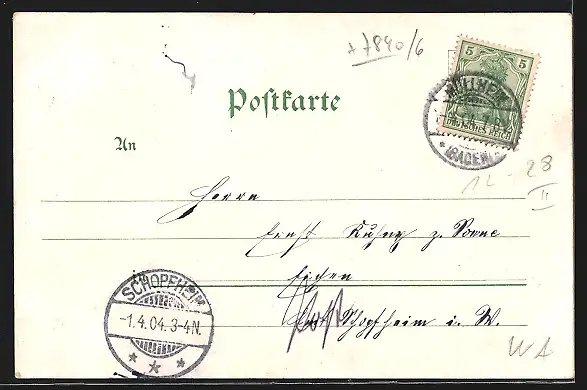 + 7840/6
5 5
Deutsches Reich
MÜLLHEIM
* (BADEN)
Postkarte
An
12 - 28
II
Herrn
Ernst z. Sonne
Eichen
Schopfheim i. W.
SCHOPFHEIM
-1.4.04.3-4N.
* * *
WA